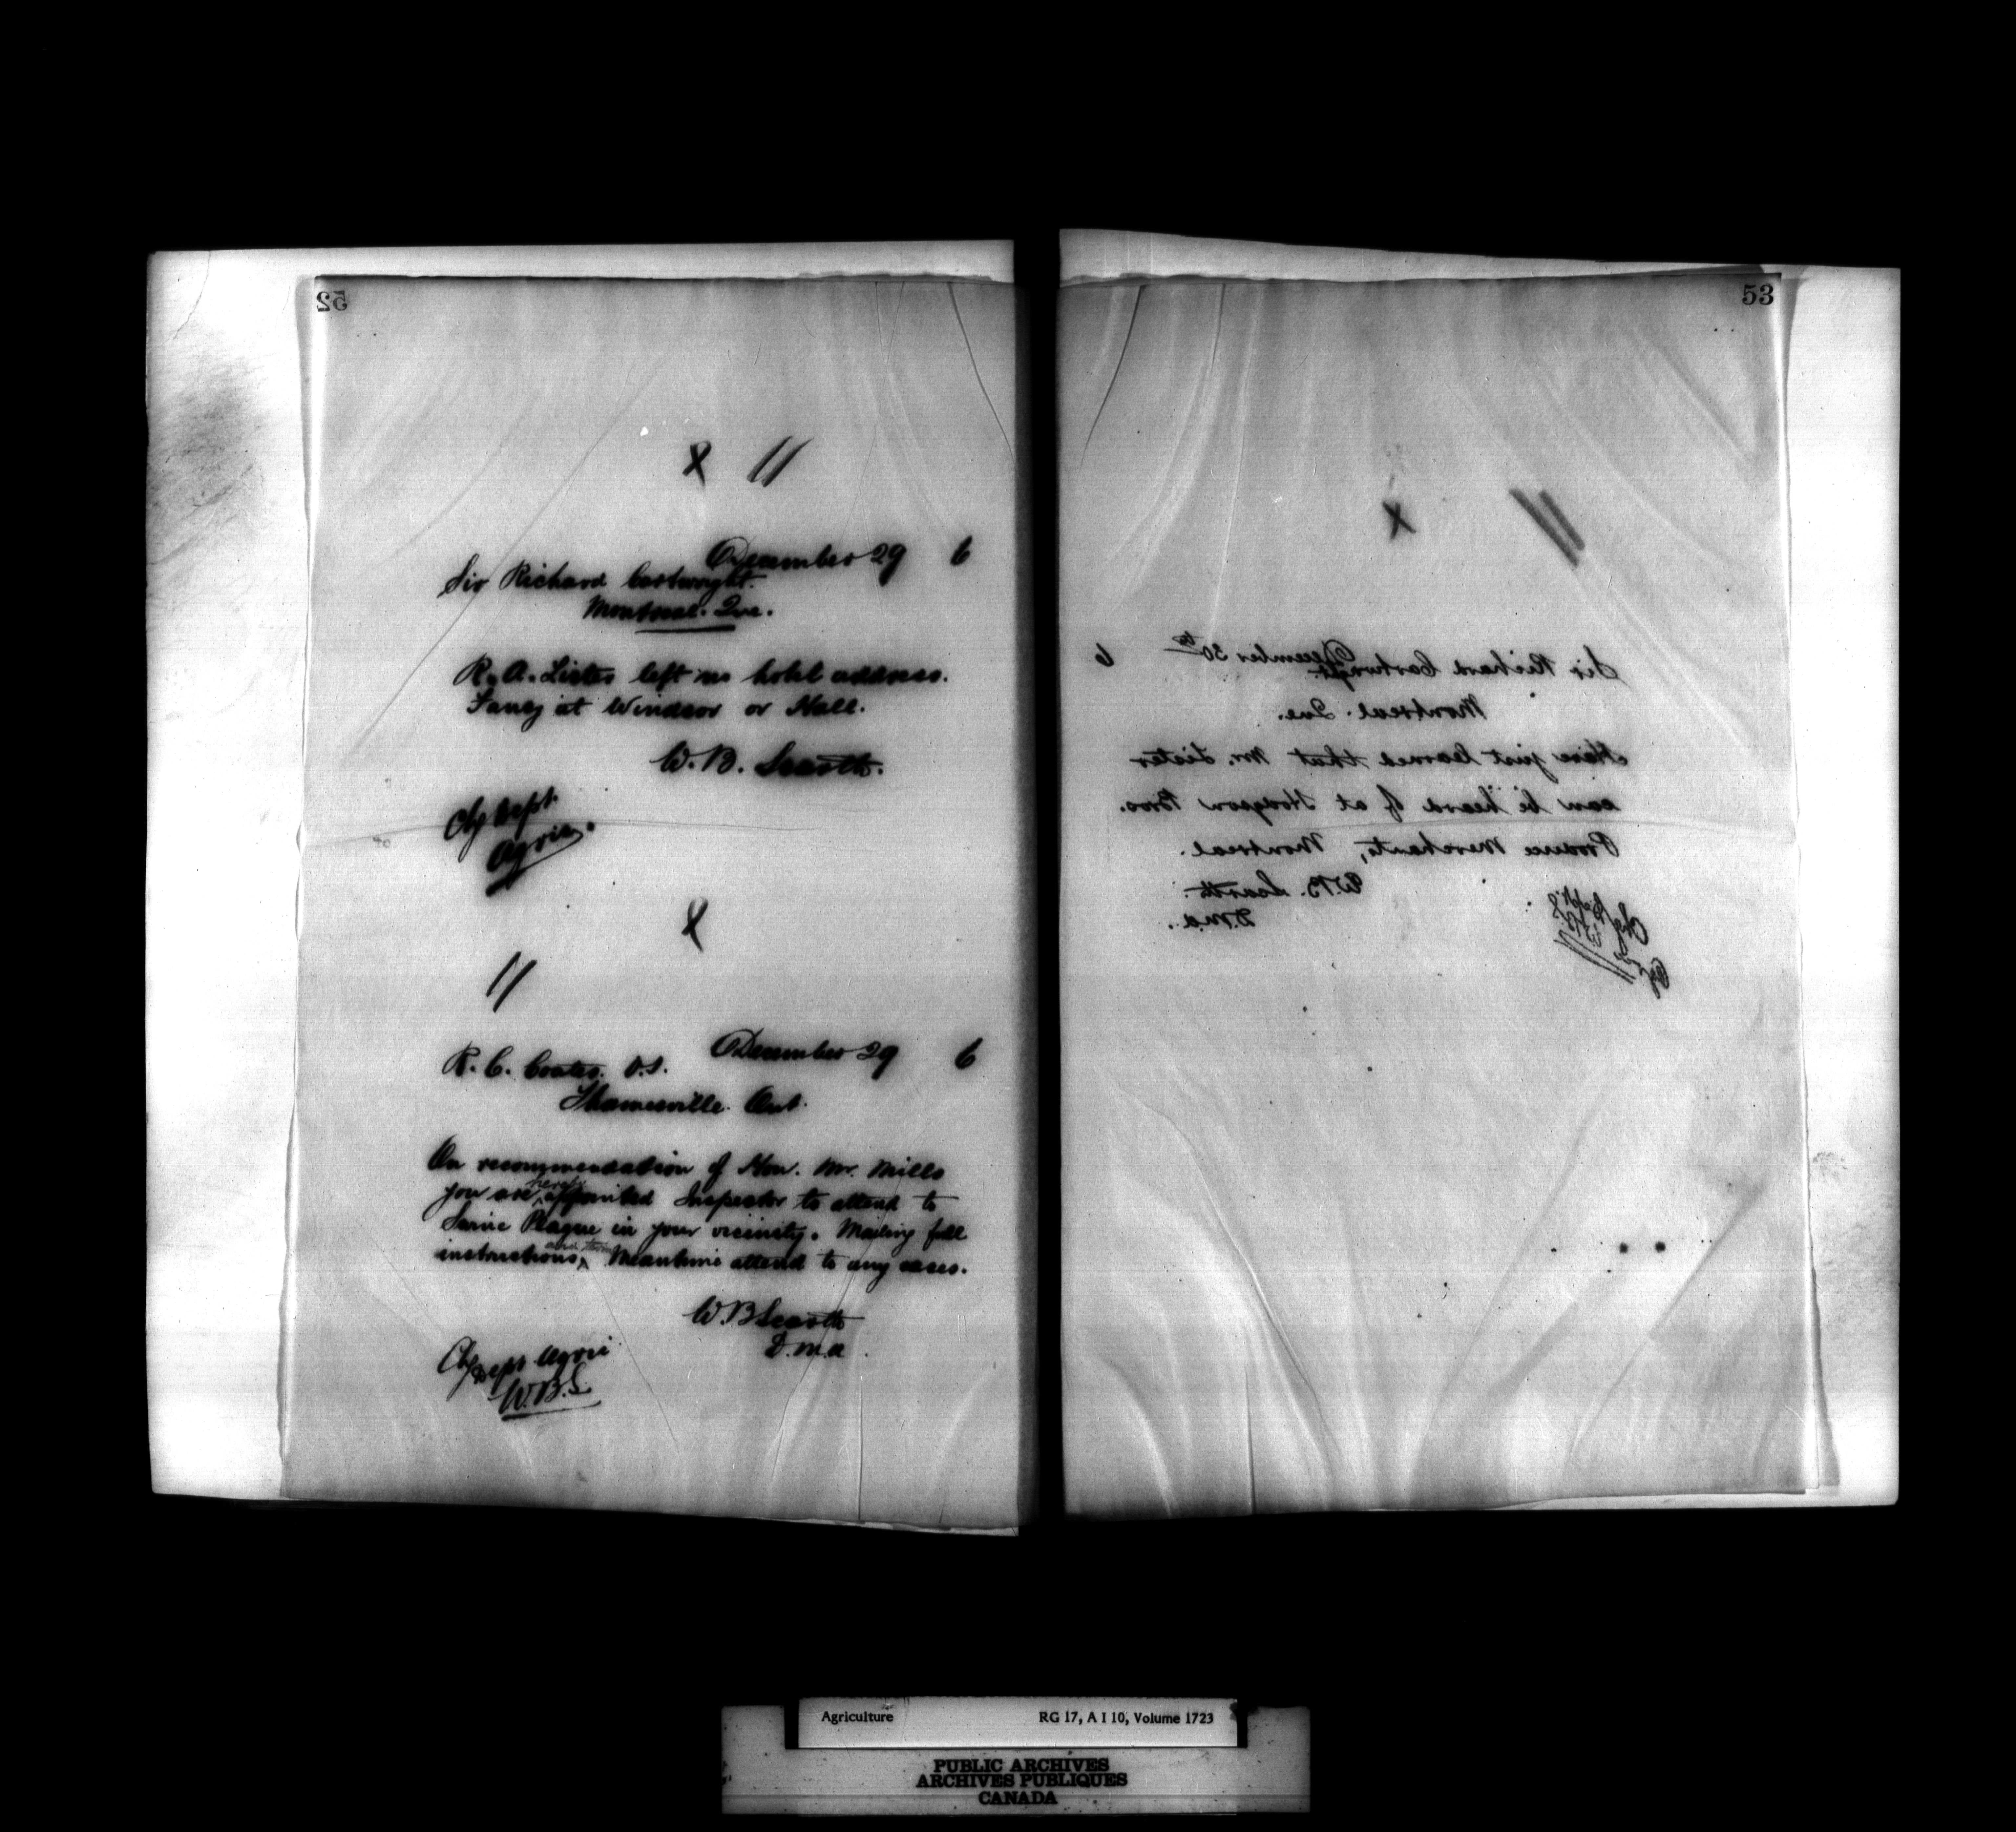 52
x //
December 29 6
Sir Richard Cartwright.
Montreal. Que.
R. A. Lister left no hotel address.
Fancy at Windsor or Hall.
W. B. Scarth.
Chg Dept.
Agric.
x
//
December 29 6
R. C. Coates. V.S.
Thamesville. Ont.
On recommendation of Hon. Mr. Mills
you are hereby appointed Inspector to attend to
Swine Plague in your vicinity. Mailing full
instructions, Meantime attend to any cases.
W. B Scarth
D.M.A.
Chg Dept Agric
W.B.S.
53
x
December 30th 6
Sir Richard Cartwright.
Montreal. Que.
Have just learned that Mr. Lister
can be heard of at Hodgson Bros.
Produce Merchants, Montreal.
W.B. Scarth.
D.M.A.
Chg Dept
Agriculture RG 17, A I 10, Volume 1723
PUBLIC ARCHIVES
ARCHIVES PUBLIQUES
CANADA